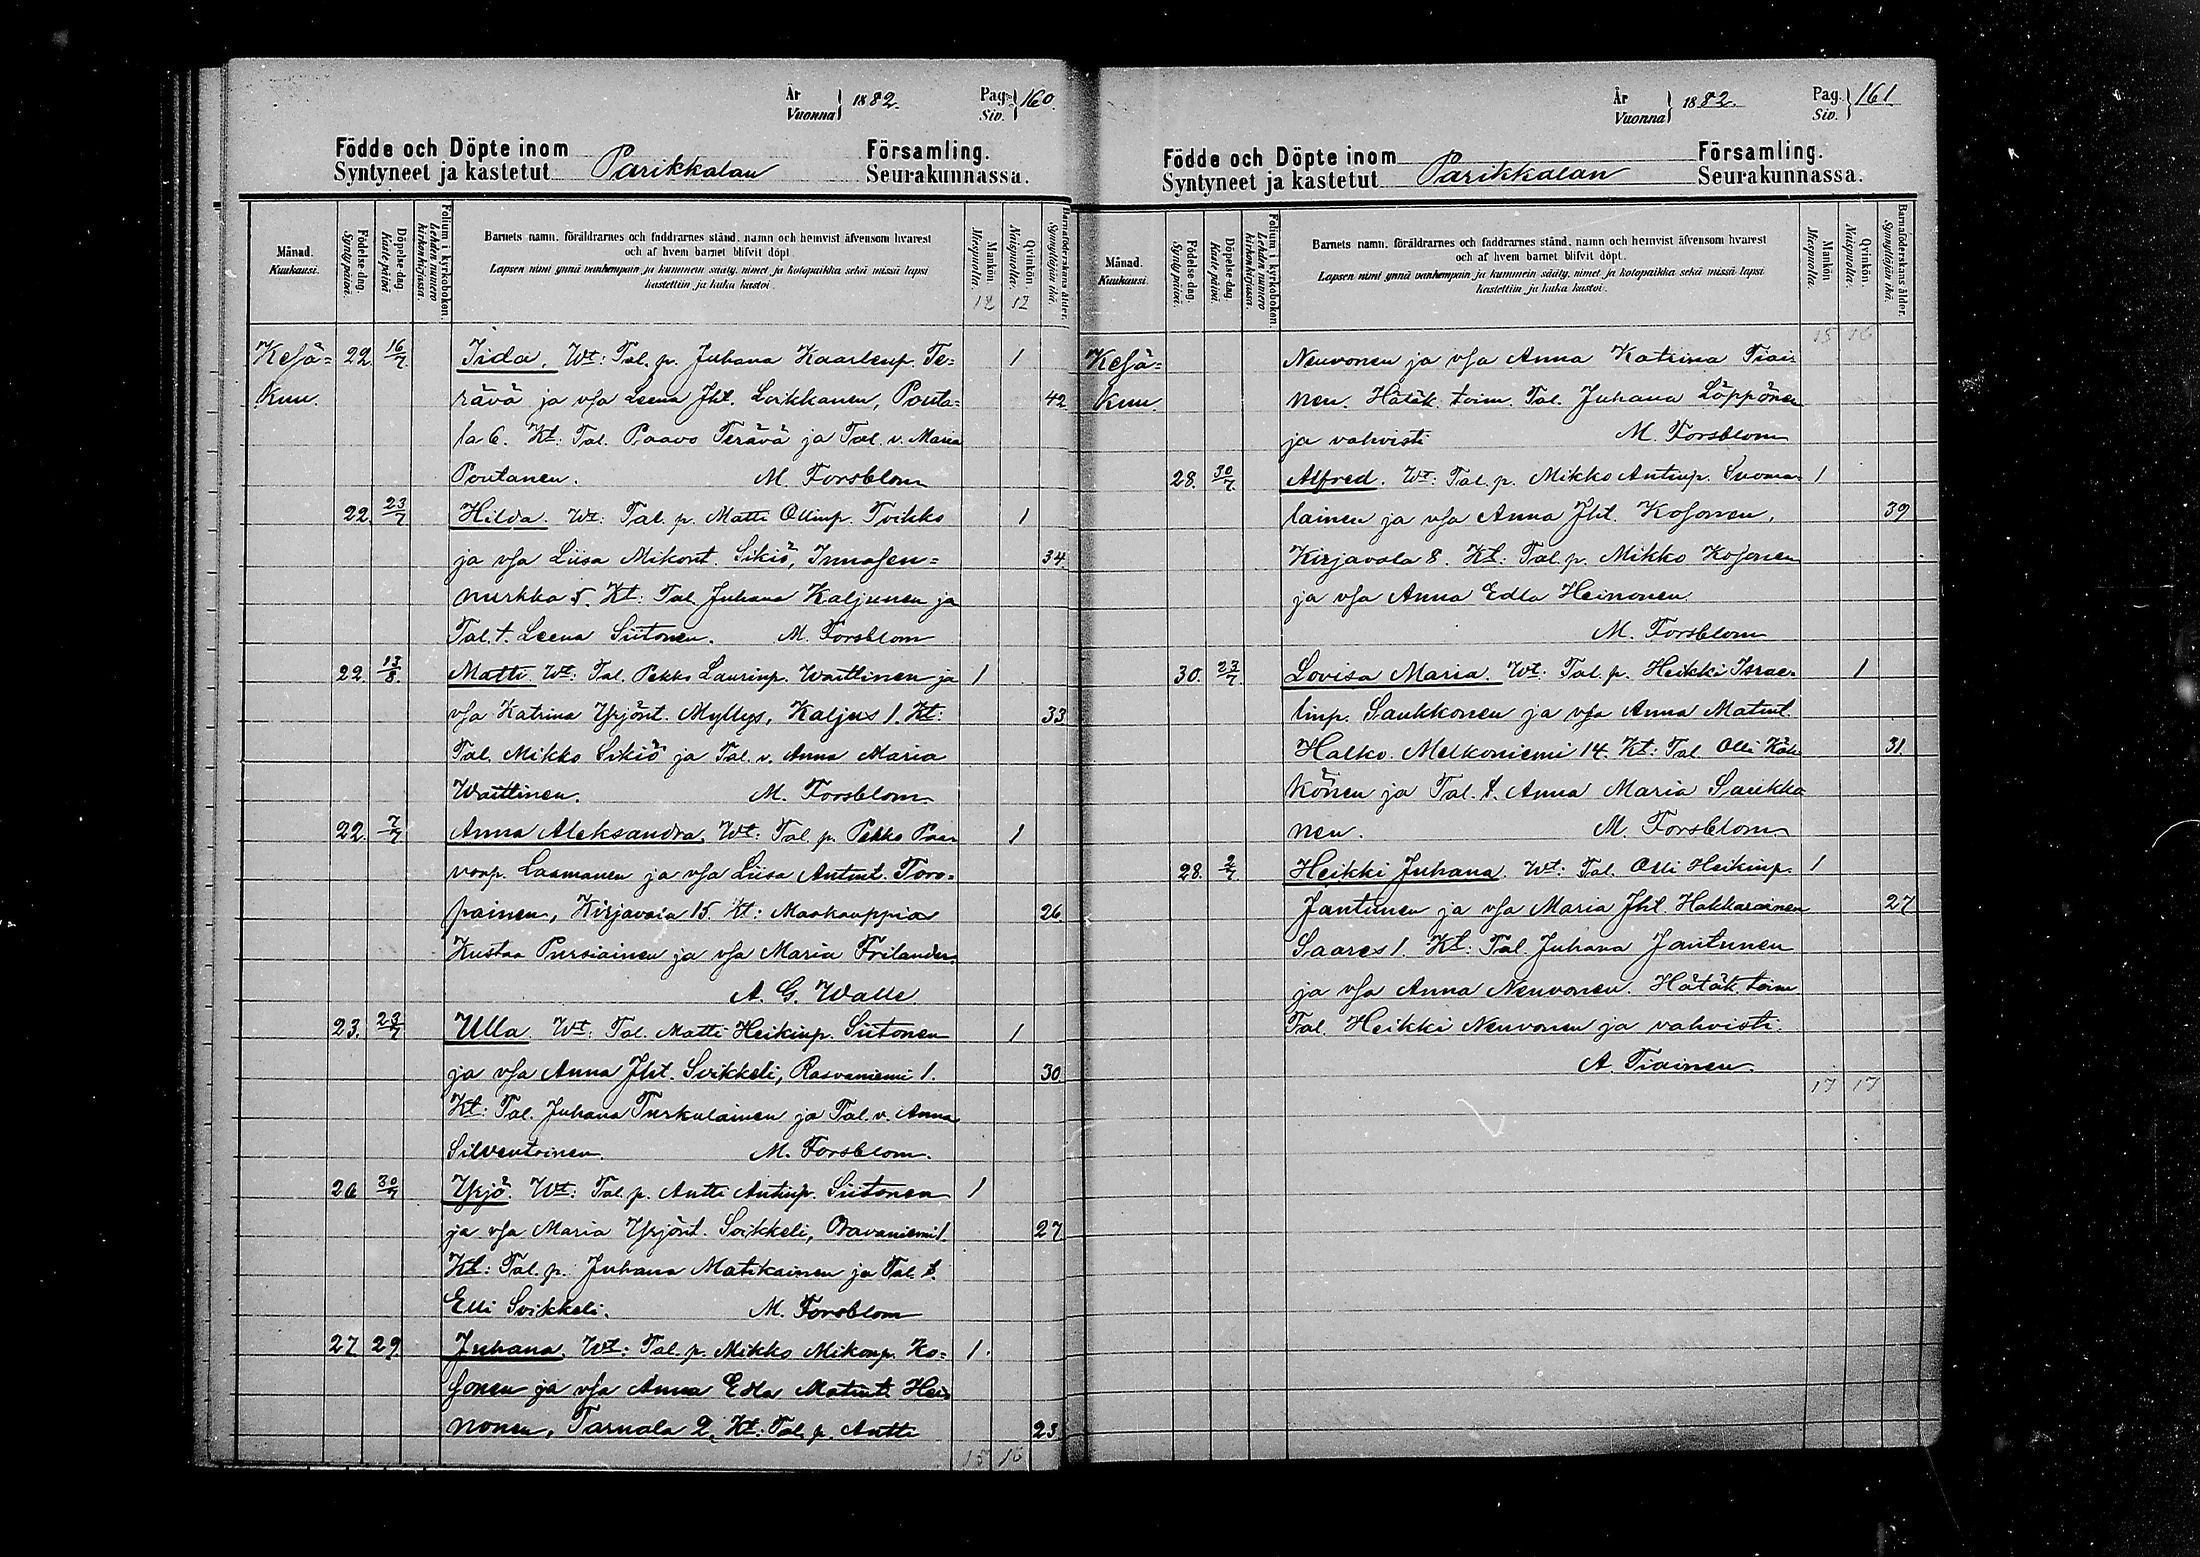 År
Vuonna 1882. Pag. Siv. 160.
Födde och Döpte inom Församling.
Syntyneet ja kastetut Parikkalan Seurakunnassa.
Månad. Kuukausi.
Födelse-dag. Synty päivä.
Döpelse-dag. Kaste päivä
Folium i kyrkoboken. Lehden numero kirkonkirjassa.
Barnets namn, föräldrarnes och faddrarnes stånd, namn och hemvist äfvensom hvarest
och af hvem barnet blifvit döpt.
Lapsen nimi ynnä vanhempain ja kummein sääty, nimet ja kotopaikka sekä missä lapsi
kastettiin ja kuka kastoi.
Mankön Miespuolia. Qvinkön Naispuolia. Barnaföderskans ålder. Synnyttäjän ikä.
12 12
Kesä= 22 16/7 Iida. Wt: Tal. p. Juhana Kaarlenp. Te= 1
kuu. rävä ja vsa Leena Jht. Loikkanen, Pouta= 42
la 6. Kt: Tal. Paavo Terävä ja Tal. v. Maria
Poutanen. M. Forsblom
22. 23/7 Hilda. Wt: Tal. p. Matti Ollinp. Toikko 1
ja vsa Liisa Mikont. Sikiö, Innasen= 34.
nurkka 5. Kt: Tal. Juhana Kaljunen ja
Tal. t. Leena Siitonen. M. Forsblom
22. 13/8. Matti Wt: Tal. Pekko Laurinp. Waittinen ja 1
vsa Katrina Yrjönt. Myllys, Kaljus 1. Kt: 33
Tal. Mikko Sikiö ja Tal. v. Anna Maria
Waittinen. M. Forsblom
22. 7/7 Anna Aleksandra. Wt: Tal. p. Pekko Paa= 1
vonp. Laamanen ja vsa Liisa Antint. Toro=
painen, Kirjavala 15. Kt: Maakauppias 26.
Kustaa Pursiainen ja vsa Maria Frilander.
A. G. Walle
23. 23/7 Ulla. Wt: Tal. Matti Heikinp. Siitonen 1
ja vsa Anna Jht. Soikkeli, Rasvaniemi 1. 30
Kt: Tal. Juhana Turkulainen ja Tal. v. Anna
Silventoinen. M. Forsblom.
26 30/7 Yrjö. Wt: Tal. p. Antti Antinp. Siitonen 1
ja vsa Maria Yrjönt. Soikkeli, 27
Kt: Tal. p. Juhana Matikainen ja Tal. t.
Elli Soikkeli. M. Forsblom
27 29 Juhana. Wt: Tal. p. Mikko Mikonp. Ko= 1.
sonen ja vsa Anna Edla Matint. Hei=
nonen, Tarnala 2. Kt: Tal. p. Antti 23
15 16
År
Vuonna 1882. Pag. Siv. 161
Födde och Döpte inom Församling.
Syntyneet ja kastetut Parikkalan Seurakunnassa.
Månad. Kuukausi.
Födelse-dag. Synty päivä.
Döpelse-dag. Kaste päivä.
Folium i kyrkoboken. Lehden numero kirkonkirjassa.
Barnets namn, föräldrarnes och faddrarnes stånd, namn och hemvist äfvensom hvarest
och af hvem barnet blifvit döpt.
Lapsen nimi ynnä vanhempain ja kummein sääty, nimet ja kotopaikka sekä missä lapsi
kastettiin ja kuka kastoi.
Mankön Miespuolia. Qvinkön Naispuolia. Barnaföderskans ålder. Synnyttäjän ikä.
15 16
Kesä= Neuvonen ja vsa Anna Katrina Tiai=
kuu. nen. Hätäk. toim. Tal. Juhana Läppönen
ja vahvisti M. Forsblom
28. 30/7. Alfred. Wt: Tal. p. Mikko Antinp. Suoma= 1
lainen ja vsa Anna Jht. Kosonen, 39
Kirjavala 8. Kt: Tal. p. Mikko Kosonen
ja vsa Anna Edla Heinonen.
M. Forsblom
30. 23/7. Lovisa Maria. Wt: Tal. p. Heikki Israe= 1
linp. Saukkonen ja vsa Anna Matint.
Halko. Melkoniemi 14. Kt: Tal. Olli Käk= 31.
könen ja Tal. t. Anna Maria Saukko=
nen. M. Forsblom.
28. 2/7. Heikki Juhana. Wt: Tal. Olli Heikinp. 1
Jantunen ja vsa Maria Jht. Hakkarainen 27
Saares 1. Kt: Tal. Juhana Jantunen
ja vsa Anna Neuvonen. Hätäk. toim
Tal. Heikki Neuvonen ja vahvisti.
A. Tiainen.
17 17